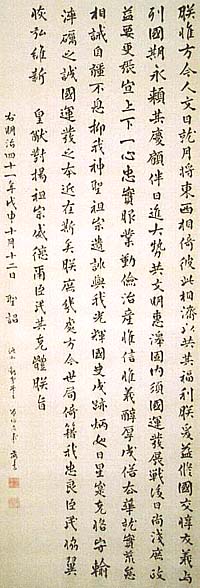 朕惟方今人文日就月將東西相倚彼此相濟以共其福利朕爰益修國交惇友義与
列國期永賴其慶顧伴日進大勢共文明惠澤固内須國運發展戰後日尚淺庶政
益要更張宜上下一心忠實服業勤儉治産惟信惟義醇厚成俗去華就實荒怠
相誡自彊不息抑我神聖祖宗遺訓與我光輝國史成跡炳如日星寔克恪守輸
淬礪之誠國運發之本近在斯矣朕庶幾處方今世局倚藉我忠良臣民協翼
恢弘維新 皇猷對揚祖宗威德爾臣民其克體朕旨
右明治四十一年戊申十月十三日 聖詔